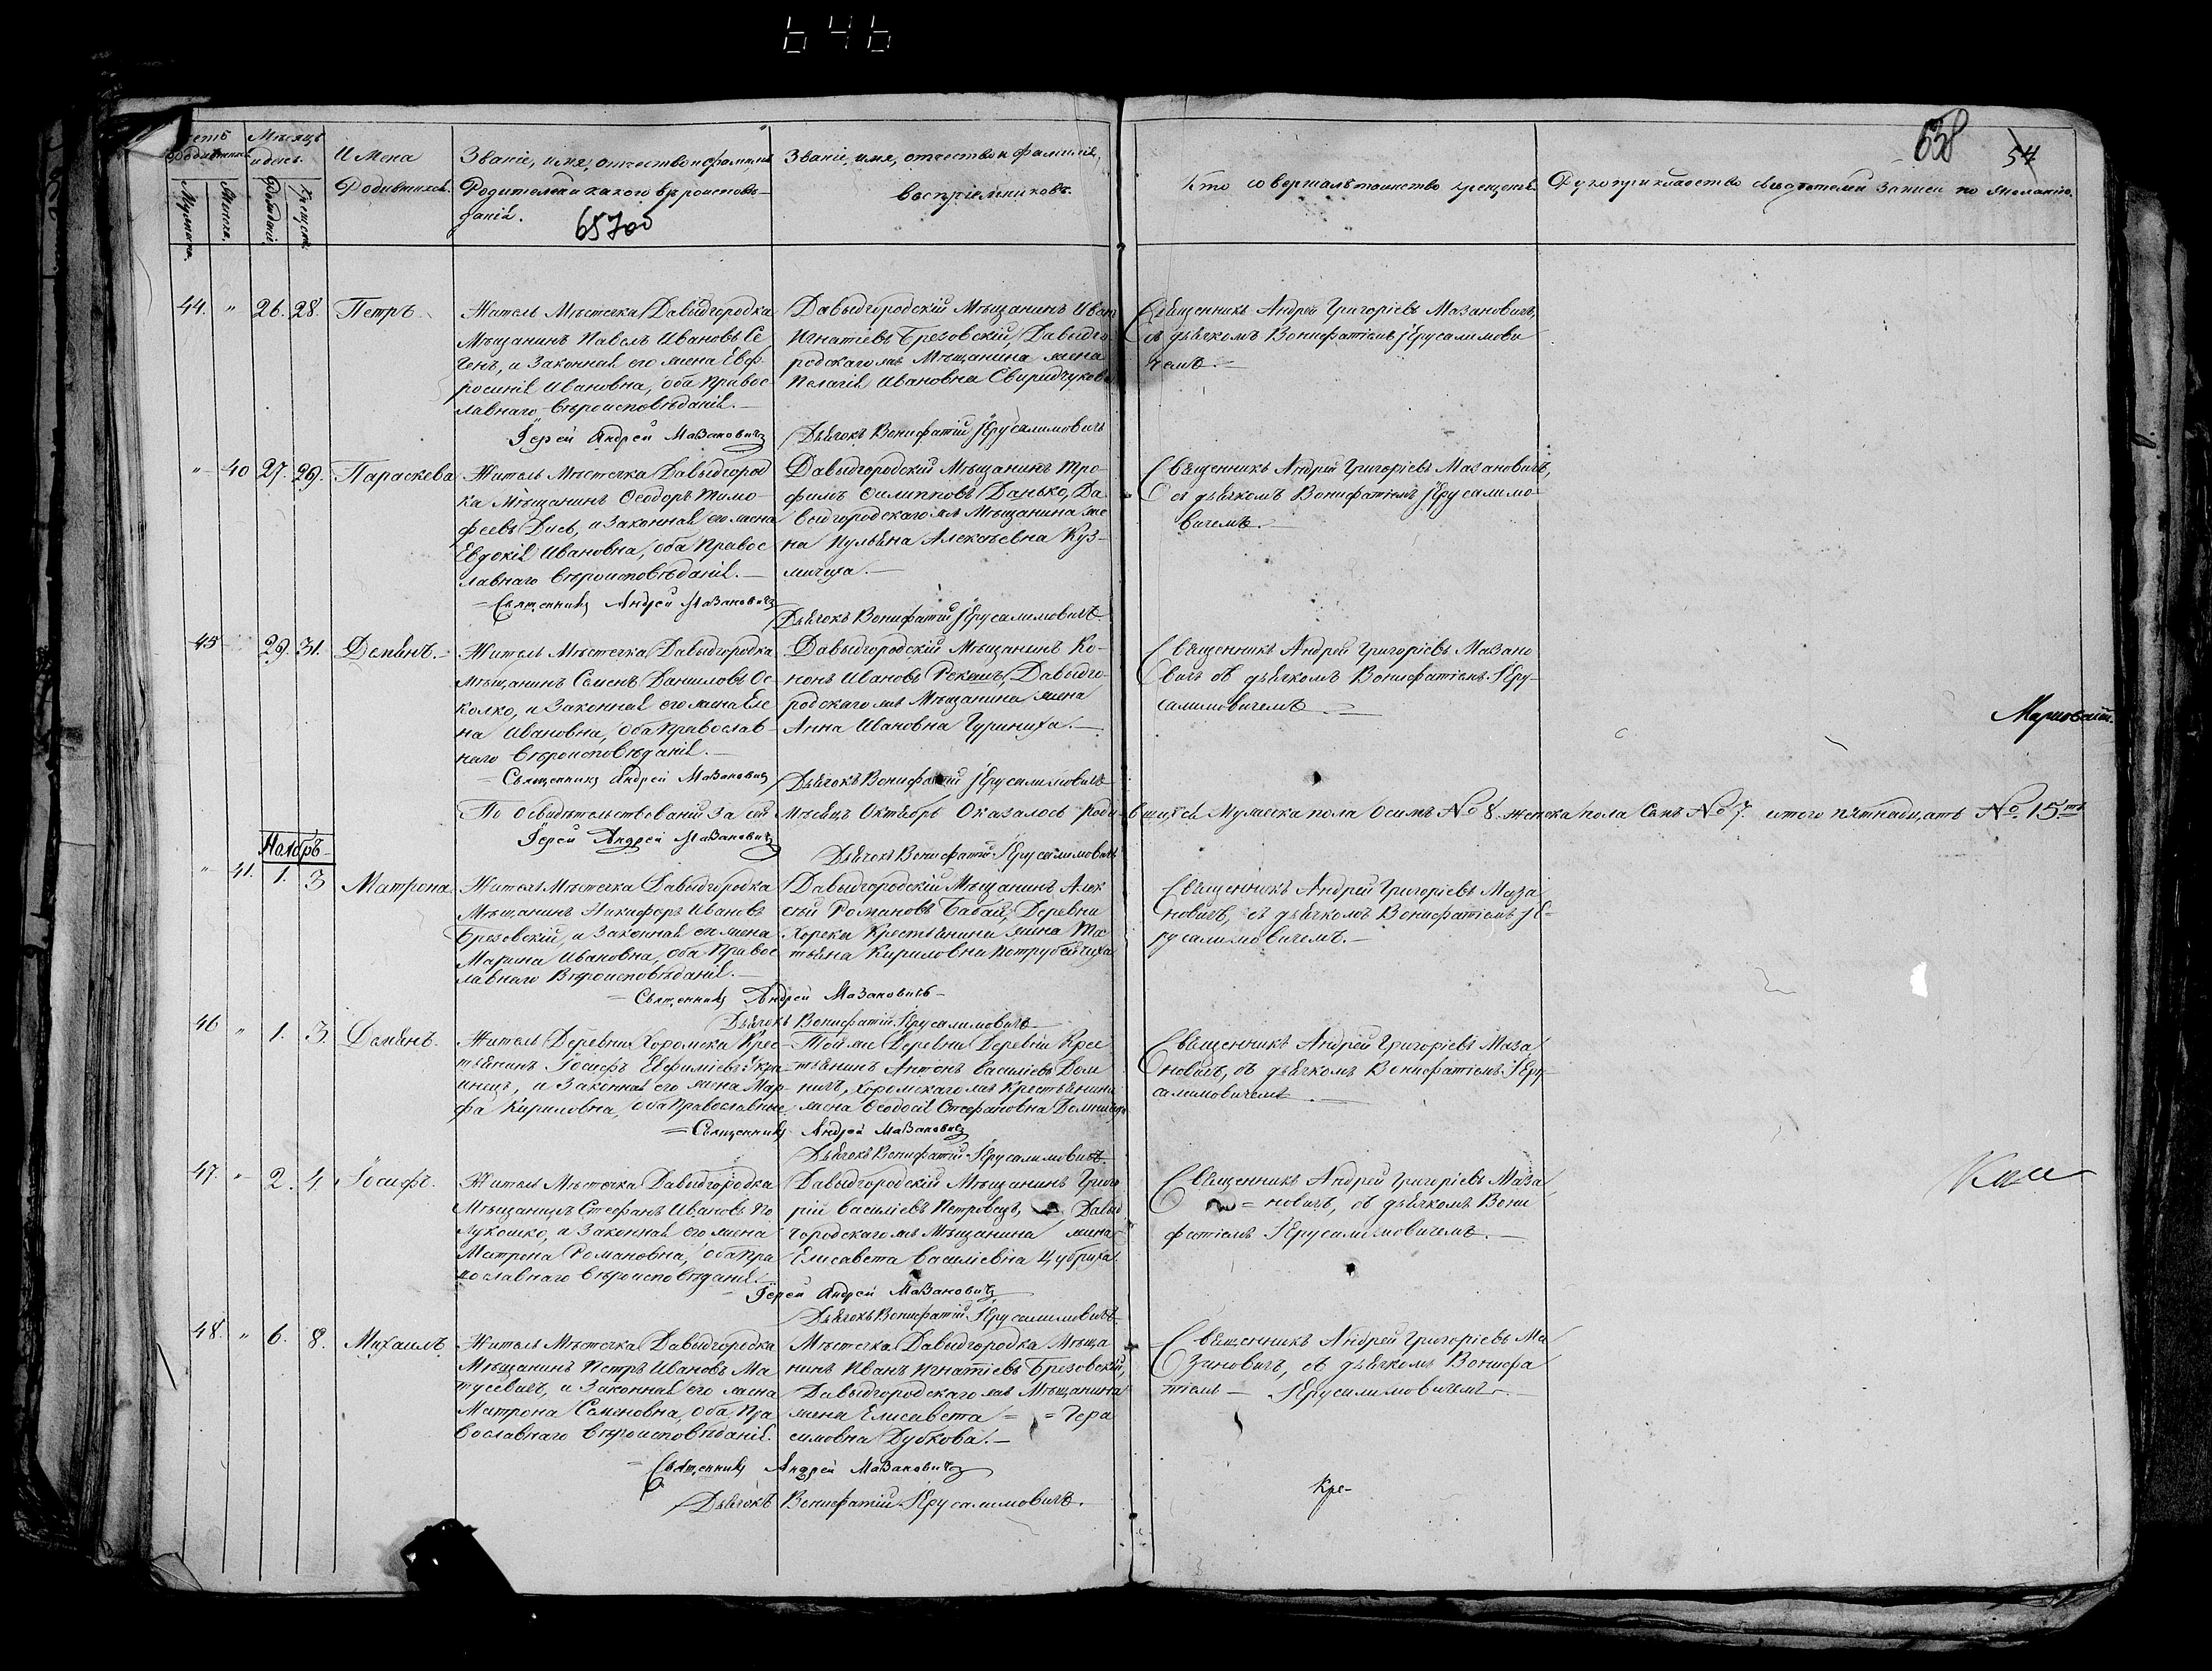 646
638 54
Счетъ родившихся
Мѣсяцъ и день.
Имена
Родившихся.
Званіе, имя, отчество и фамилія
Родителей и какого вѣроисповѣ-
данія.
65 700
Званіе, имя, отчество и фамилія
воспріемниковъ.
Кто совершалъ таинство крещенія.
Рукоприкладство свидѣтелей записи по желанію.
Мужеска. Женска. Рожденія. Крещенія.
44. " 26. 28. Петръ.
Житель Мѣстечка Давыдгородка
Мѣщанинъ Павелъ Ивановъ Се
ченъ, и Законная его жена Евф-
росинія Ивановна, оба Правос-
лавнаго вѣроисповѣданія.—
Іерей Андрей Мазановичъ
Давыдгородскій Мѣщанинъ Иван
Игнатіевъ Брезовскій, Давыдго-
родскагожъ Мѣщанина жена
Пелагія Ивановна Свиридчукова
Дьячокъ Вонифатій Іерусалимовичъ
Священникъ Андрей Григоріевъ Мазановичъ,
съ дьячкомъ Вонифатіемъ Іерусалимови
чемъ.—
" 40 27. 29. Параскева
Житель Мѣстечка Давыдгород
ка Мѣщанинъ Ѳеодоръ Тимо-
феевъ Дисъ, и Законная его жена
Евдокія Ивановна, оба Правос
лавнаго вѣроисповѣданія.—
Священникъ Андрей Мазановичъ
Давыдгородскій Мѣщанинъ Тро-
фимъ Филипповъ Данько, Да-
выдгородскагожъ Мѣщанина же
на Ульяна Алексѣевна Куз-
мичиха.—
Дьячокъ Вонифатій Іерусалимовичъ
Священникъ Андрей Григоріевъ Мазановичъ,
съ дьячкомъ Вонифатіемъ Іерусалимо-
вичемъ.—
45 29. 31. Демьянъ.
Житель Мѣстечка Давыдгородка
Мѣщанинъ Семенъ Даниловъ Ос
колко, и Законная его жена Еле
на Ивановна, оба Православ-
наго вѣроисповѣданія.—
Священникъ Андрей Мазановичъ
Давыдгородскій Мѣщанинъ Ко-
нонъ Ивановъ Рекешъ, Давыдго-
родскагожъ Мѣщанина жена
Анна Ивановна Гуриниха.—
Дьячокъ Вонифатій Іерусалимовичъ
Священникъ Андрей Григоріевъ Мазано
вичъ съ дьячкомъ Вонифатіемъ Іеру-
салимовичемъ.—
По Освидѣтельствованіи За сей Мѣсяцъ Октябрь Оказалось Родившихся Мужеска пола Осимъ № 8. женска пола Семъ № 7. итого пятнадцать № 15ть
Іерей Андрей Мазановичъ
Дьячокъ Вонифатій Іерусалимовичъ
Ноябръ
" 41. 1. 3 Матрона.
Житель Мѣстечка Давыдгородка
Мѣщанинъ Никифоръ Ивановъ
Брезовскій, и Законная его жена
Марина Ивановна, оба Правос
лавнаго Вѣроисповѣданія.—
Священникъ Андрей Мазановичъ
Давыдгородскій Мѣщанинъ Алек
сѣй Романовъ Бабай, Деревни
Хорска Крестьянина жена Та
тьяна Кириловна Потрубейчиха
Дьячокъ Вонифатій Іерусалимовичъ
Священникъ Андрей Григоріевъ Маза
новичъ, съ дьячкомъ Вонифатіемъ Іе-
русалимовичемъ.—
46 " 1. 3. Демьянъ.
Житель Деревни Хоромска Крес-
тьянинъ Іосифъ Евфиміевъ Укра
инецъ, и Законная его жена Мар-
фа Кириловна, оба Православные
Священникъ Андрей Мазановичъ
Той же Деревни Деревни Крес
тьянинъ Антонъ Василіевъ Дом
ничъ, Хоромскагожъ Крестьянина
жена Ѳеодосія Стефановна
Дьячокъ Вонифатій Іерусалимовичъ
Священникъ Андрей Григоріевъ Маза
новичъ, съ дьячкомъ Вонифатіемъ Іеру-
салимовичемъ
47. " 2. 4. Іосифъ.
Житель Мѣстечка Давыдгородка
Мѣщанинъ Стефанъ Ивановъ По
лукошко, и Законная его жена
Матрона Романовна, оба Пра
вославнаго вѣроисповѣданія.
Іерей Андрей Мазановичъ
Давыдгородскій Мѣщанинъ Григо
рій Василіевъ Петровецъ, Давыд
городскагожъ Мѣщанина жена
Елисавета Василіевна Цубриха
Дьячокъ Вонифатій Іерусалимовичъ
Священникъ Андрей Григоріевъ Маза
новичъ, съ дьячкомъ Вони
фатіемъ Іерусалимовичемъ.—
48. " 6. 8. Михаилъ
Житель Мѣстечка Давыдгородка
Мѣщанинъ Петръ Ивановъ Ма
тусевичъ, и Законная его жена
Матрона Семеновна, оба Пра
вославнаго вѣроисповѣданія.
Священникъ Андрей Мазановичъ
Мѣстечка Давыдгородка Мѣща
нинъ Иванъ Игнатіевъ Брезовскій,
Давыдгородскагожъ Мѣщанина
жена Елисавета = = Гера
симовна Дубкова.—
Дьячокъ Вонифатій Іерусалимовичъ.
Священникъ Андрей Григоріевъ Ма
зановичъ, съ дьячкомъ Вонифа
тіемъ — Іерусалимовичемъ.—
Кре-